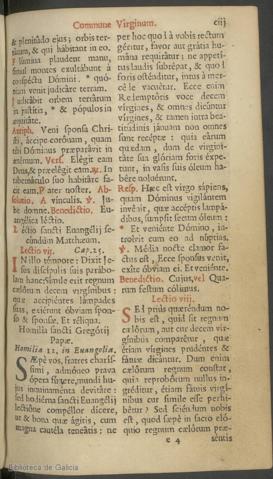 Commune Virginum. ciij
& plenitúdo ejus; orbis ter-
rárum, & qui hábitant in eo.
Flúmina plaudent manu,
simul montes exultábunt à
conspéctu Dómini. * quó-
niam venit judicáre terram.
Judicábit orbem terrárum
in justítia, * & pópulos in
æquitáte.
Antiph. Veni sponsa Chri-
sti, áccipe corónam, quam
tibi Dóminus præparávit in
ætérnum. Vers. Elégit eam
Deus, & præelégit eam. ℟. In
tabernáculo suo habitáre fa-
cit eam. Pater noster. Ab-
solutio. A vínculis. ℣. Ju-
be domne. Benedictio. Eu-
angélica léctio.
Léctio sancti Euangélij se-
cúndùm Matthæum.
Lectio vij. Cap. 25.
IN illo témpore: Dixit Je-
sus discípulis suis parábo-
lam hanc: Símile erit regnum
cælórum decem virgínibus:
quæ accipiéntes lámpades
suas, exiérunt óbviam spon-
so & sponsæ. Et réliqua.
Homilía sancti Gregórij
Papæ.
Homilia 12. in Euangelia.
SÆpè vos, fratres charís-
simi, admóneo prava
ópera fúgere, mundi hu-
jus inquinaménta devitáre:
sed hódiérna sancti Euangélij
lectióne compéllor dícere,
ut & bona quæ ágitis, cum
magna cautéla teneátis: ne
per hoc quod à vobis rectum
géritur, favor aut grátia hu-
mána requirátur: ne appetí-
tus laudis subrépat, & quod
foris osténditur, intus à mer-
céde vacuétur. Ecce enim
Redemptóris voce decem
vírgines, & omnes dicúntur
vírgines, & tamen intra bea-
titúdinis jánuam non omnes
sunt recéptæ: quia eárum
quædam, dum de virgini-
táte sua glóriam foris éxpe-
tunt, in vasis suis óleum ha-
bére noluérunt.
Resp. Hæc est virgo sápiens,
quam Dóminus vigilántem
invénit, quæ accéptis lampá-
dibus, sumpsit secum óleum:
* Et veniénte Dómino, in-
troívit cum eo ad núptias.
℣. Média nocte clamor fa-
ctus est, Ecce sponsus venit,
exíte óbviam ei. Et veniénte.
Benedictio. Cujus, vel Qua-
rum festum cólimus.
Lectio viij.
SEd priùs quæréndum no-
bis est, quid sit regnum
cælórum, aut cur decem vir-
gínibus comparétur, quæ
étiam vírgines prudéntes &
fátuæ dicántur. Dum enim
cælórum regnum constat,
quia reprobórum nullus in-
gréditur, étiam fátuis virgí-
nibus cur símile esse perhi-
bétur? Sed sciéndum nobis
est, quòd sæpe in sacro eló-
quio regnum cælórum præ-
e 4 séntis
Biblioteca de Galicia